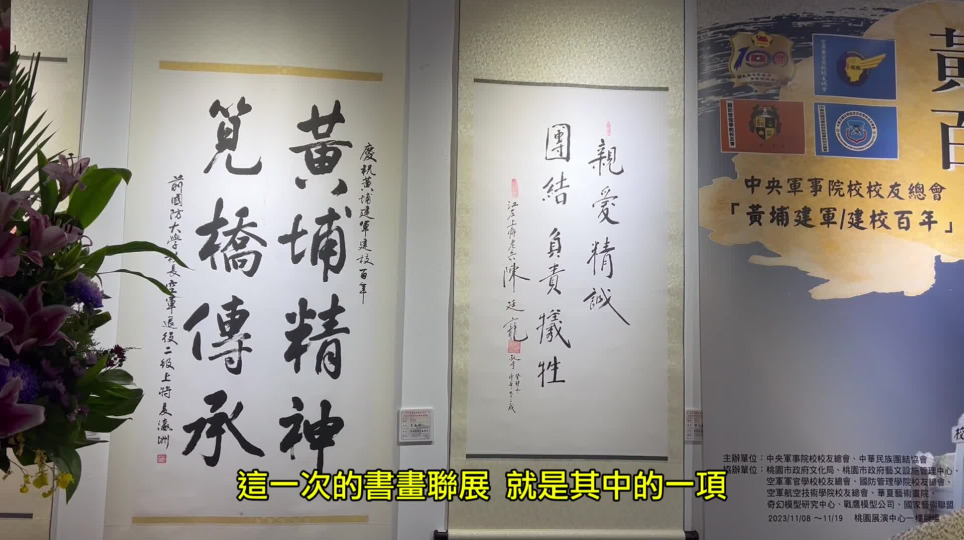 慶祝黃埔建軍建校百年
黃埔精神
筧橋傳承
前國防大學校長空軍退役二級上將夏瀛洲
親愛精誠
團結負責犧牲
陳廷寵
黃
百
100
中央軍事院校校友總會
「黃埔建軍/建校百年」
主辦單位：中央軍事院校校友總會、中華民族團結協會
協辦單位：桃園市政府文化局、桃園市政府藝文設施管理中心、
空軍軍官學校校友總會、國防管理學院校友總會、
空軍航空技術學院校友總會、華夏藝術書院、
奇幻模型研究中心、戰鷹模型公司、國家藝術聯盟
2023/11/08 ～11/19 桃園展演中心一樓
這一次的書畫聯展 就是其中的一項